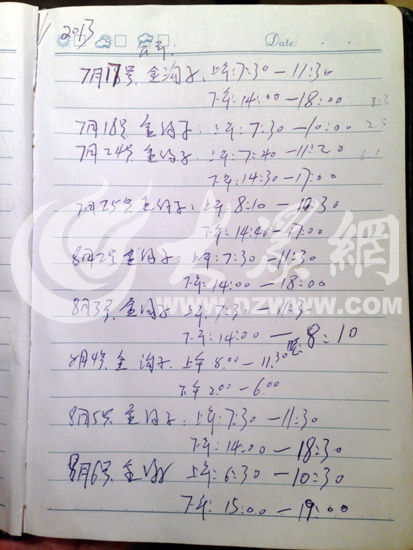 2013
Date:
7月17号 金沟子 上午:7:30-11:30
下午:14:00-18:00
7月18号 金沟子: 上午:7:30-10:00
7月24号 金沟子: 上午:7:40-11:20
下午:14:30-17:00
7月25号 金沟子: 上午8:10-12:30
下午:14:40-17:00
8月2号 金沟子: 上午:7:30-11:30
下午:14:00-18:00
8月3号 金沟子: 上午:7:30-11:30
下午:14:00-8:10
8月4号 金沟子 上午8:00-11:30
下午2:00-6:00
8月5号 金沟子: 上午:7:30-11:30
下午:14:00-18:30
8月6号 金沟子 上午:6:30-10:30
下午:15:00-19:00
大众網
www.dzwww.com